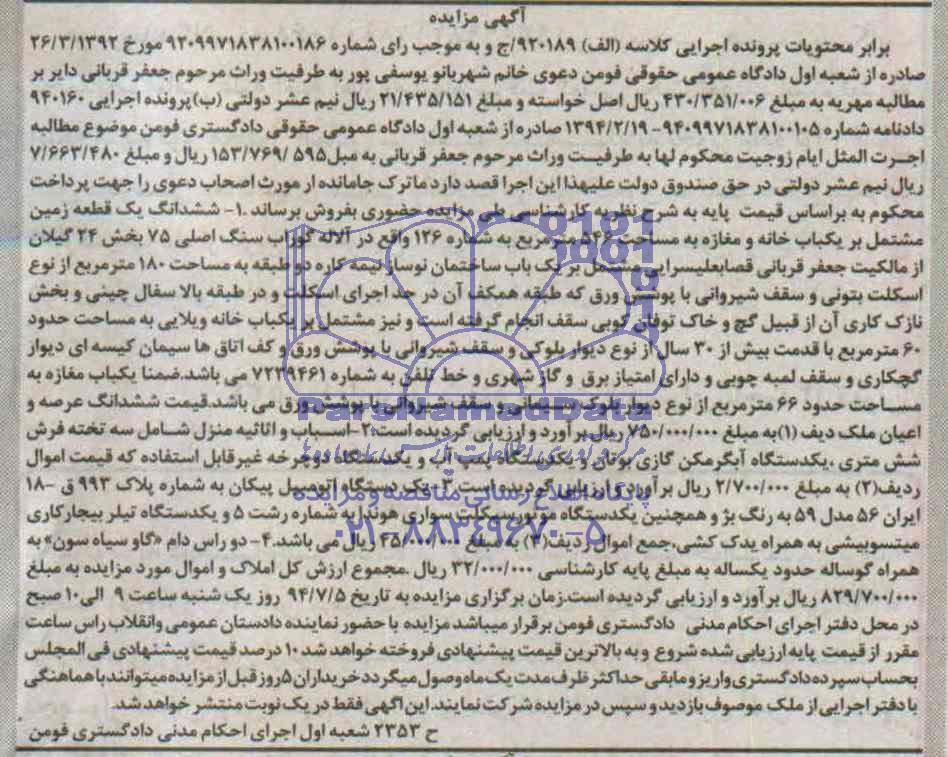 آگهی مزایده
برابر محتویات پرونده اجرایی کلاسه (الف) ۹۲۰۱۸۹/ج و به موجب رای شماره ۹۲۰۹۹۷۱۸۳۸۱۰۰۱۸۶ مورخ ۲۶/۳/۱۳۹۲
صادره از شعبه اول دادگاه عمومی حقوقی فومن دعوی خانم شهربانو یوسفی پور به طرفیت وراث مرحوم جعفر قربانی دایر بر
مطالبه مهریه به مبلغ ۴۳۰/۳۵۱/۰۰۶ ریال اصل خواسته و مبلغ ۲۱/۴۳۵/۱۵۱ ریال نیم عشر دولتی (ب) پرونده اجرایی ۹۴۰۱۶۰
دادنامه شماره ۹۴۰۹۹۷۱۸۳۸۱۰۰۱۰۵-۱۳۹۴/۲/۱۹ صادره از شعبه اول دادگاه عمومی حقوقی دادگستری فومن موضوع مطالبه
اجرت المثل ایام زوجیت محکوم لها به طرفیت وراث مرحوم جعفر قربانی به مبل ۱۵۳/۷۶۹/۵۹۵ ریال و مبلغ ۷/۶۶۳/۴۸۰
ریال نیم عشر دولتی در حق صندوق دولت علیهذا این اجرا قصد دارد ماترک جامانده از مورث اصحاب دعوی را جهت پرداخت
محکوم به براساس قیمت پایه به شرح نظریه کارشناسی طی مزایده حضوری بفروش برساند .۱- ششدانگ یک قطعه زمین
مشتمل بر یکباب خانه و مغازه به مساحت ۵۴۶ مترمربع به شماره ۱۲۶ واقع در آلاله گوراب سنگ اصلی ۷۵ بخش ۲۴ گیلان
از مالکیت جعفر قربانی قصابعلیسرایی مشتمل بر یک باب ساختمان نوساز نیمه کاره دو طبقه به مساحت ۱۸۰ مترمربع از نوع
اسکلت بتونی و سقف شیروانی با پوشش ورق که طبقه همکف آن در حد اجرای اسکلت و در طبقه بالا سفال چینی و بخش
نازک کاری آن از قبیل گچ و خاک توفال کوبی سقف انجام گرفته است و نیز مشتمل بر یکباب خانه ویلایی به مساحت حدود
۶۰ مترمربع با قدمت بیش از ۳۰ سال از نوع دیوار بلوکی و سقف شیروانی با پوشش ورق و کف اتاق ها سیمان کیسه ای دیوار
گچکاری و سقف لمبه چوبی و دارای امتیاز برق و گاز شهری و خط تلفن به شماره ۷۲۳۹۴۶۱ می باشد.ضمنا یکباب مغازه به
مساحت حدود ۶۶ مترمربع از نوع دیوار بلوک سیمانی و سقف شیروانی با پوشش ورق می باشد.قیمت ششدانگ عرصه و
اعیان ملک دیف (۱)به مبلغ ۷۵۰/۰۰۰/۰۰۰ ریال برآورد و ارزیابی گردیده است.۲-اسباب و اثاثیه منزل شامل سه تخته فرش
شش متری ،یکدستگاه آبگرمکن گازی بوتان و یکدستگاه پمپ آب و یکدستگاه دوچرخه غیرقابل استفاده که قیمت اموال
ردیف(۲) به مبلغ ۲/۷۰۰/۰۰۰ ریال برآورد و ارزیابی گردیده است.۳- یک دستگاه اتومبیل پیکان به شماره پلاک ۹۹۳ ق -۱۸
ایران ۵۶ مدل ۵۹ به رنگ بژ و همچنین یکدستگاه موتورسیکلت سواری هوندا به شماره رشت ۵ و یکدستگاه تیلر بیجارکاری
میتسوبیشی به همراه یدک کشی،جمع اموال ردیف(۳) به مبلغ ۴۵/۰۰۰/۰۰۰ ریال می باشد.۴- دو راس دام «گاو سیاه سون» به
همراه گوساله حدود یکساله به مبلغ پایه کارشناسی ۳۲/۰۰۰/۰۰۰ ریال .مجموع ارزش کل املاک و اموال مورد مزایده به مبلغ
۸۲۹/۷۰۰/۰۰۰ ریال برآورد و ارزیابی گردیده است.زمان برگزاری مزایده به تاریخ ۹۴/۷/۵ روز یک شنبه ساعت ۹ الی۱۰ صبح
در محل دفتر اجرای احکام مدنی دادگستری فومن برقرار میباشد مزایده با حضور نماینده دادستان عمومی وانقلاب راس ساعت
مقرر از قیمت پایه ارزیابی شده شروع و به بالاترین قیمت پیشنهادی فروخته خواهد شد۱۰ درصد قیمت پیشنهادی فی المجلس
بحساب سپرده دادگستری واریز و مابقی حداکثر ظرف مدت یک ماه وصول میگردد خریداران ۵روز قبل از مزایده میتوانند با هماهنگی
با دفتر اجرایی از ملک موصوف بازدید و سپس در مزایده شرکت نمایند. این اگهی فقط در یک نوبت منتشر خواهد شد.
ح ۲۳۵۳ شعبه اول اجرای احکام مدنی دادگستری فومن
ParsNamadData
پایگاه اطلاع رسانی مناقصه و مزایده
۰۲۱-۸۸۳۴۹۶۷۰-۵